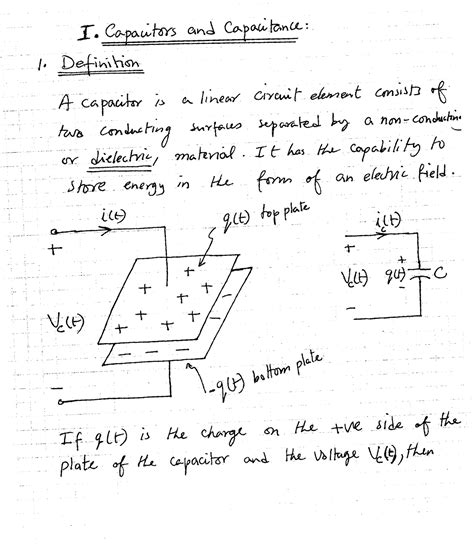 I. Capacitors and Capacitance:
1. Definition
A capacitor is a linear circuit element consists of
two conducting surfaces separated by a non-conducting
or dielectric, material. It has the capability to
store energy in the form of an electric field.
i(t)
q(t) top plate
+
Vc(t)
−
+ + + + + + + + +
− − − −
-q(t) bottom plate
ic(t)
+
Vc(t)
−
+
q(t)
−
C
If q(t) is the charge on the +ve side of the
plate of the capacitor and the voltage Vc(t), then